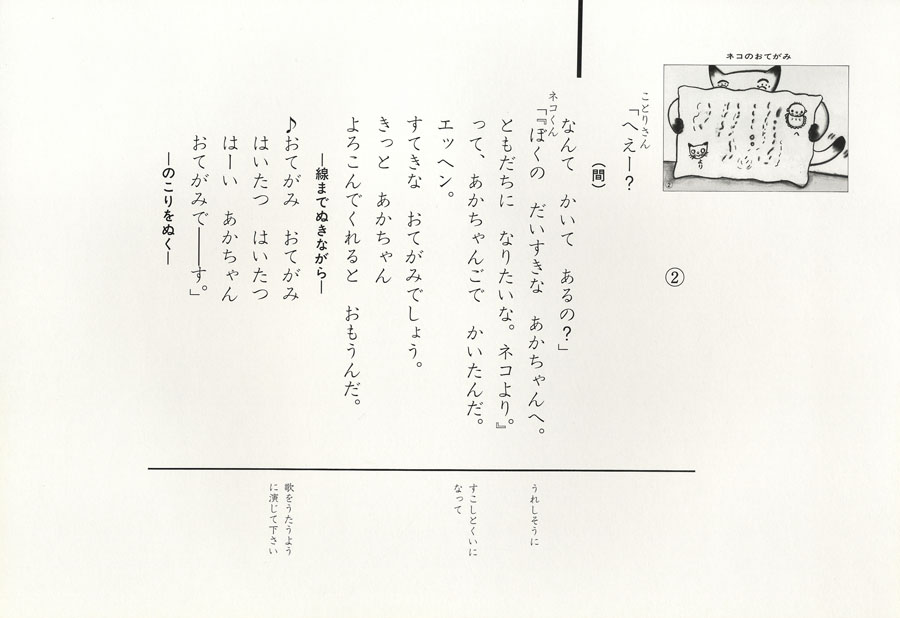 ネコのおてがみ
②
ことりさん
「へえー?
(間)
なんて かいて あるの?」
ネコくん
「『ぼくの だいすきな あかちゃんへ。
ともだちに なりたいな。ネコより。』
って、あかちゃんごで かいたんだ。
エッヘン。
すてきな おてがみでしょう。
きっと あかちゃん
よろこんでくれると おもうんだ。
―線までぬきながら―
♪おてがみ おてがみ
はいたつ はいたつ
はーい あかちゃん
おてがみで――す。」
―のこりをぬく―
うれしそうに
すこしとくいに
なって
歌をうたうよう
に演じて下さい